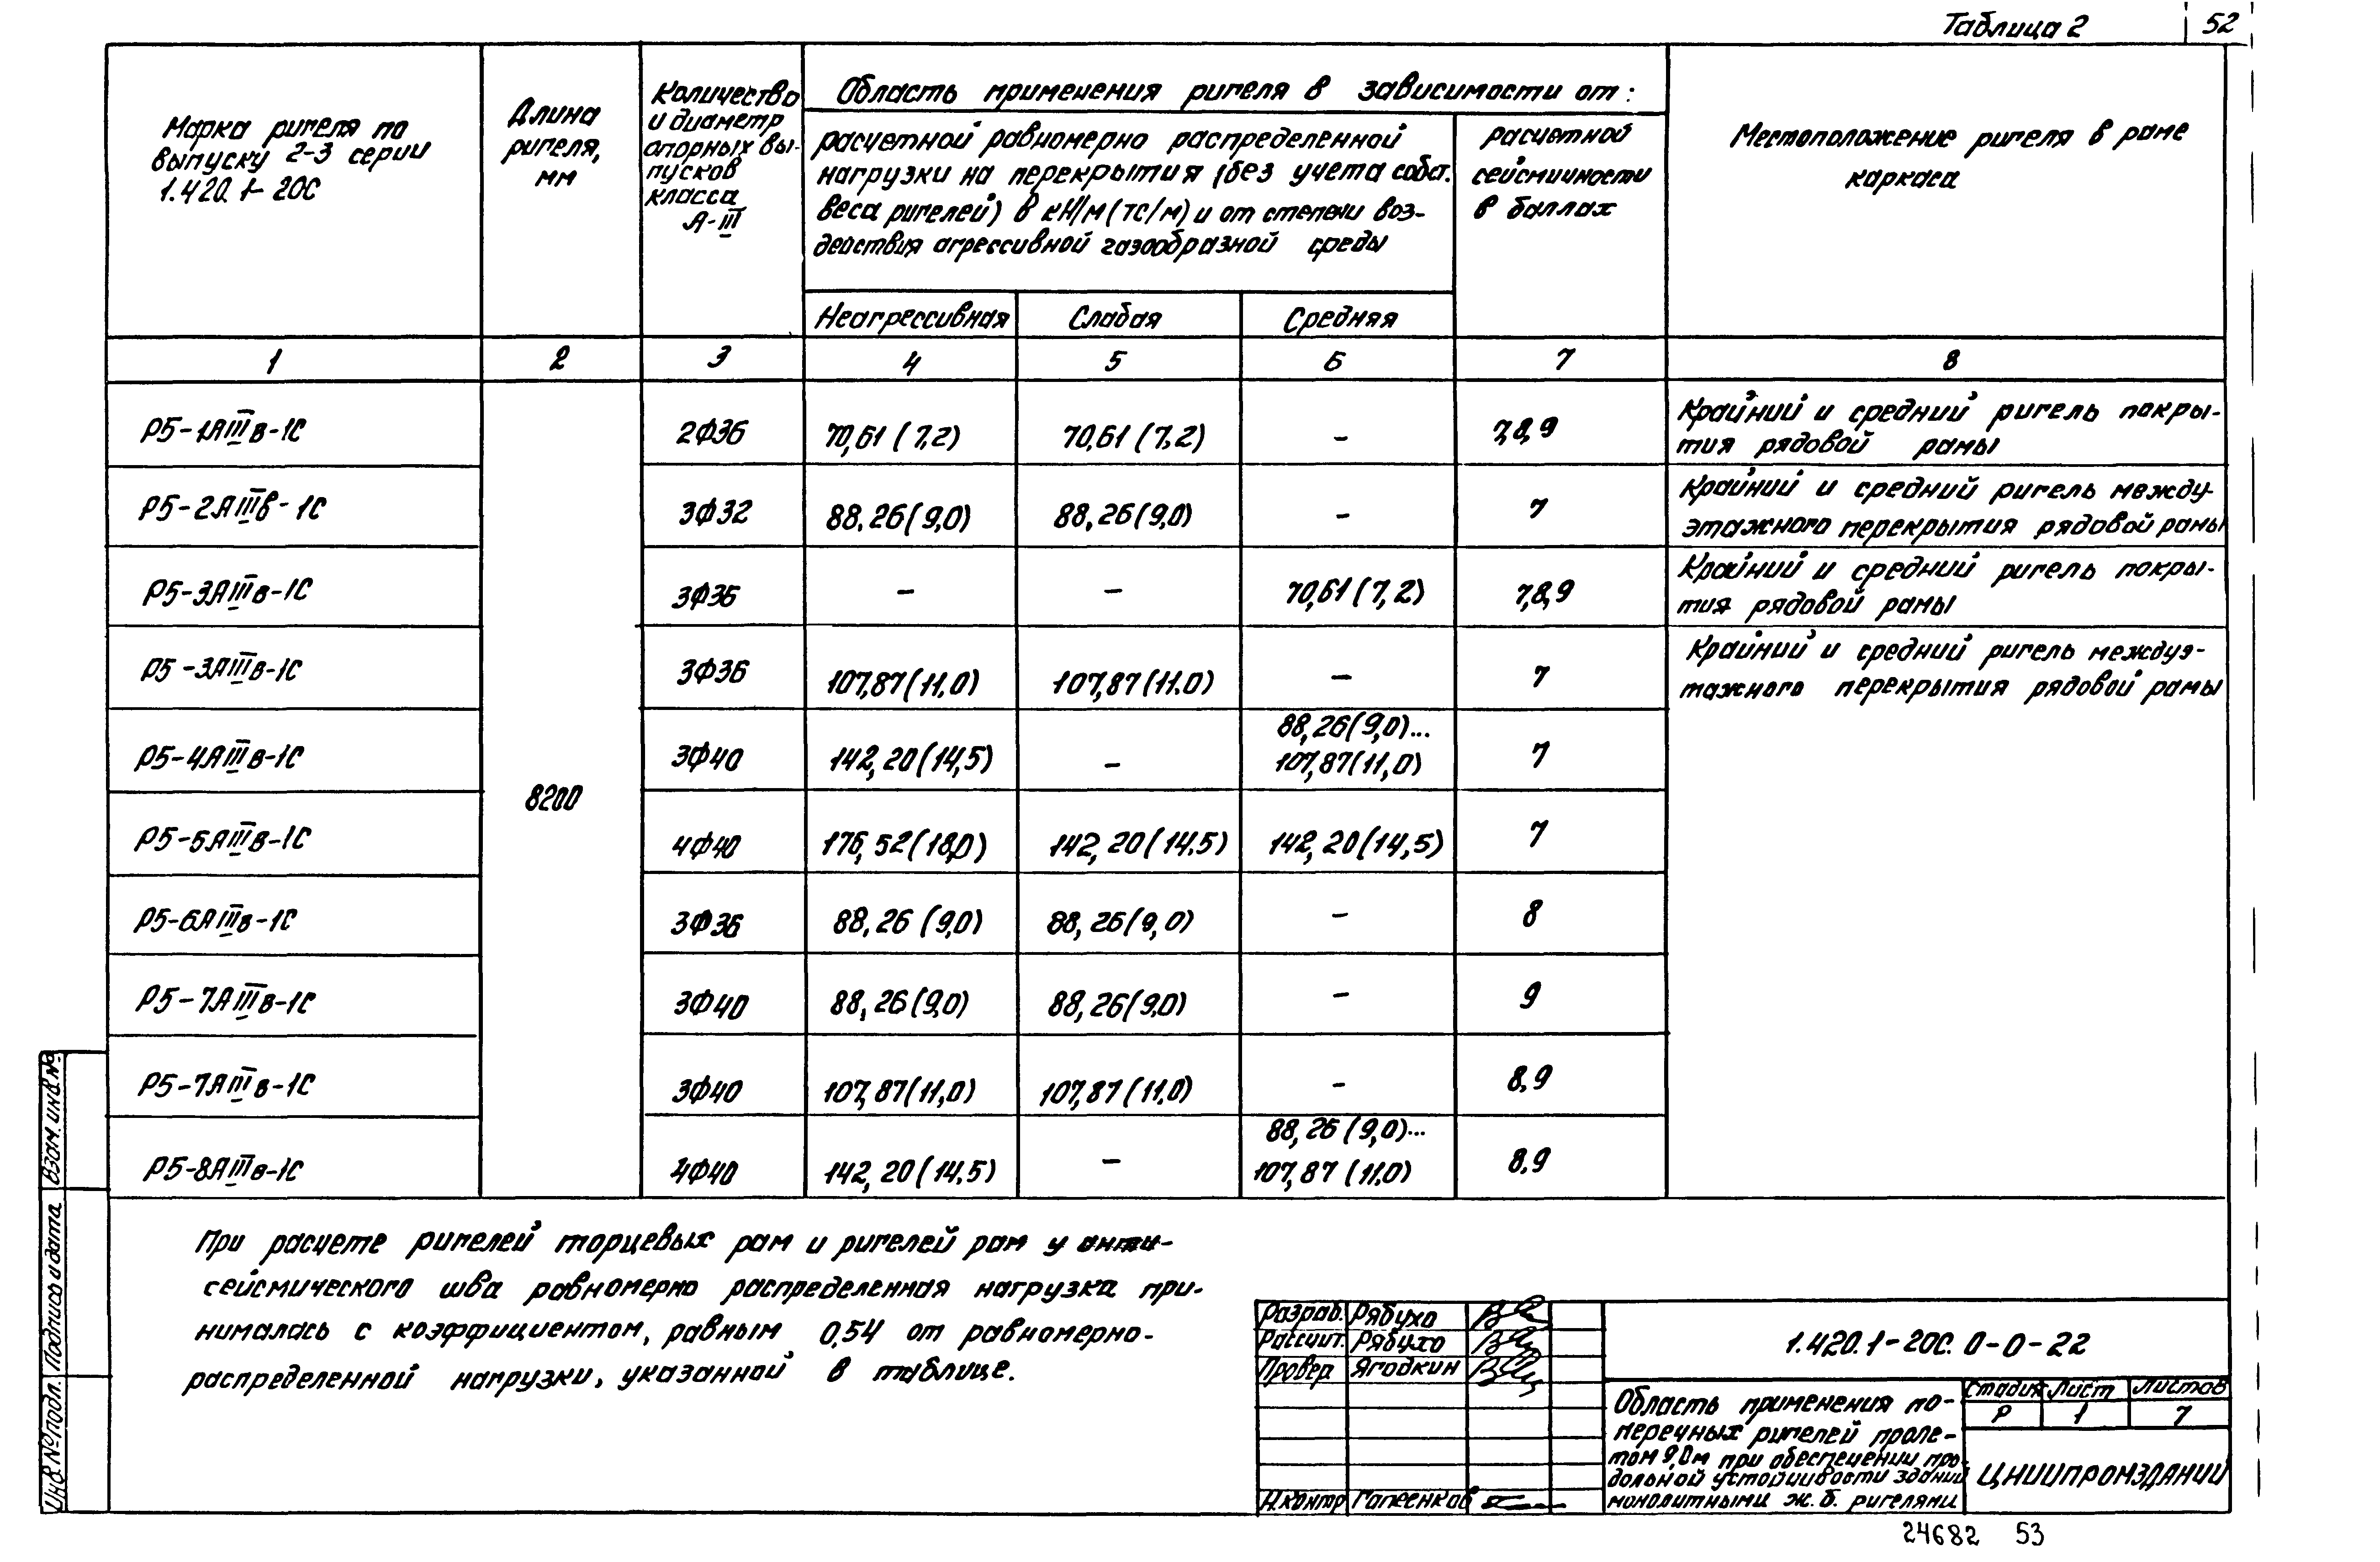 Таблица 2
52
Марка ригеля по
выпуску 2-3 серии
1.420.1-20С
Длина
ригеля,
мм
Количество
и диаметр
опорных вы-
пусков
класса
А-III
Область применения ригеля в зависимости от:
расчетной равномерно распределенной
нагрузки на перекрытия (без учета собст.
веса ригелей) в кН/м (тс/м) и от степени воз-
действия агрессивной газообразной среды
Неагрессивная
Слабая
Средняя
расчетной
сейсмичности
в баллах
Местоположение ригеля в раме
каркаса
1 2 3 4 5 6 7 8
Р5-1АIIIв-1С 2Ф36 70,61 (7,2) 70,61 (7,2) - 7,8,9 Крайний и средний ригель покры-
тия рядовой рамы
Р5-2АIIIв-1С 3Ф32 88,26(9,0) 88,26(9,0) - 7 Крайний и средний ригель между-
этажного перекрытия рядовой рамы
Р5-3АIIIв-1С 3Ф36 - - 70,61 (7,2) 7,8,9 Крайний и средний ригель покры-
тия рядовой рамы
Р5-3АIIIв-1С 3Ф36 107,87(11,0) 107,87(11.0) - 7 Крайний и средний ригель междуэ-
тажного перекрытия рядовой рамы
88,26(9,0)...
Р5-4АIIIв-1С 3Ф40 142,20(14,5) - 107,87(11,0) 7
8200
Р5-5АIIIв-1С 4Ф40 176,52(18,0) 142,20(14.5) 142,20(14,5) 7
Р5-6АIIIв-1С 3Ф36 88,26 (9,0) 88,26(9,0) - 8
Р5-7АIIIв-1С 3Ф40 88,26(9,0) 88,26(9,0) - 9
Р5-7АIIIв-1С 3Ф40 107,87(11,0) 107,87(11.0) - 8,9
88,26 (9,0)...
Р5-8АIIIв-1С 4Ф40 142,20(14.5) - 107,87 (11.0) 8.9
При расчете ригелей торцевых рам и ригелей рам у анти-
сейсмического шва равномерно распределенная нагрузка при-
нималась с коэффициентом, равным 0,54 от равномерно-
распределенной нагрузки, указанной в таблице.
Взам. инв.№
Подпись и дата
Инв.№подл.
Разраб. Рябухо
Рассчит. Рябухо
Провер. Ягодкин
Н.контр Гапеенков
1.420.1-20С. 0-0-22
Область применения по-
перечных ригелей проле-
том 9,0м при обеспечении про-
дольной устойчивости зданий
монолитными ж.б. ригелями
Стадия Лист Листов
Р 1 7
ЦНИИПРОМЗДАНИЙ
24682 53